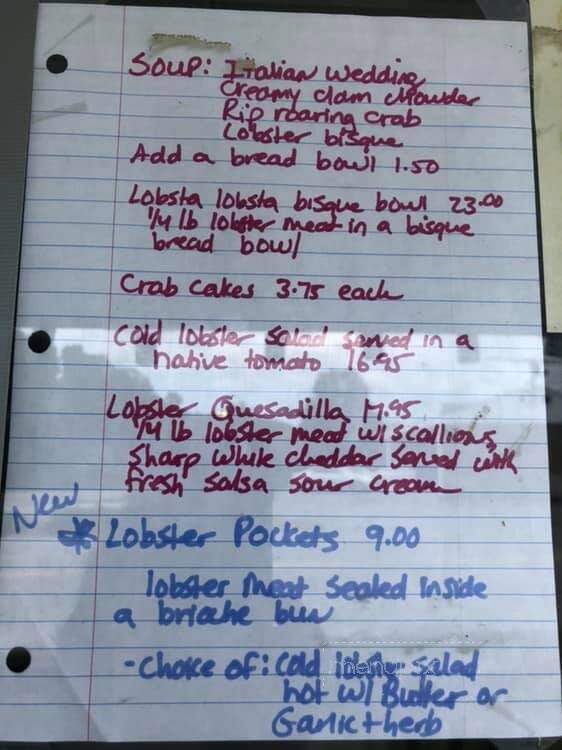 Soup: Italian Wedding
Creamy clam chowder
Rip roaring crab
Lobster bisque
Add a bread bowl 1.50
Lobsta lobsta bisque bowl 23.00
1/4 lb lobster meat in a bisque
bread bowl
Crab cakes 3.75 each
Cold lobster salad served in a
native tomato 16.95
Lobster Quesadilla 17.95
1/4 lb lobster meat w/ scallions,
Sharp white cheddar served with
fresh salsa sour cream
New
* Lobster Pockets 9.00
lobster meat sealed inside
a brioche bun
- Choice of: Cold lobster salad
hot w/ Butter or
Garlic + herb